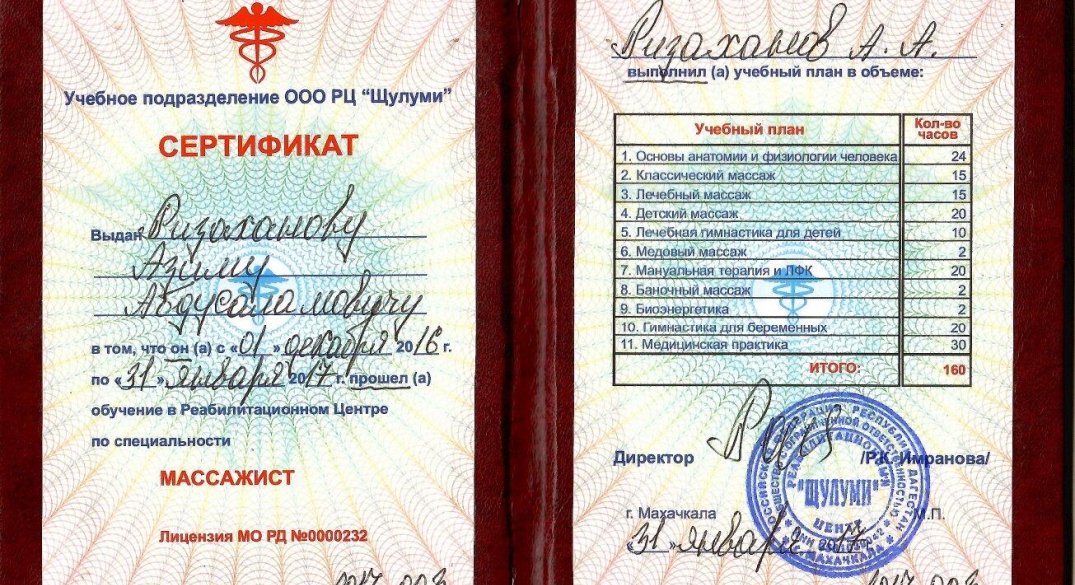 Учебное подразделение ООО РЦ "Щулуми"
СЕРТИФИКАТ
Выдан Ризаханову
Азиму
Абдусаламовичу
в том, что он (а) с «01» декабря 2016 г.
по «31» января 2017 г. прошел (а)
обучение в Реабилитационном Центре
по специальности
МАССАЖИСТ
Лицензия МО РД №0000232
Ризаханов А. А.
выполнил (а) учебный план в объеме:
Учебный план Кол-во часов
1. Основы анатомии и физиологии человека 24
2. Классический массаж 15
3. Лечебный массаж 15
4. Детский массаж 20
5. Лечебная гимнастика для детей 10
6. Медовый массаж 2
7. Мануальная терапия и ЛФК 20
8. Баночный массаж 2
9. Биоэнергетика 2
10. Гимнастика для беременных 20
11. Медицинская практика 30
ИТОГО: 160
Директор /Р.К. Имранова/
РЕАБИЛИТАЦИОННЫЙ
"ЩУЛУМИ"
ЦЕНТР
г. Махачкала М.П.
«31» января 2017